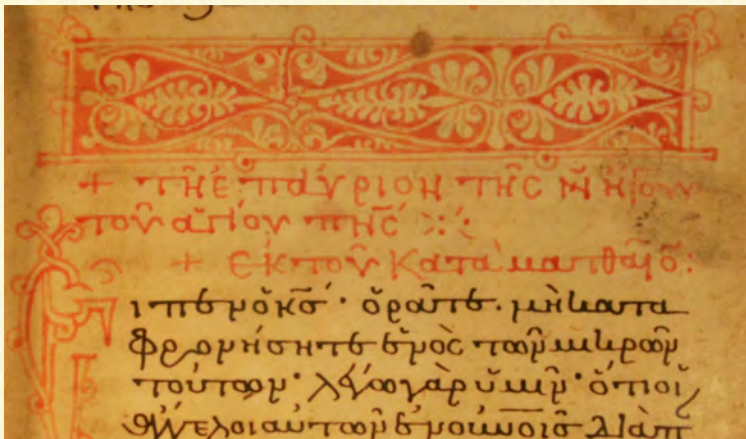 + τῆ ἐπαύριον τῆς Ν ἤγουν
τοῦ ἁγίου πνς
+ ἐκ τοῦ κατὰ ματθαῖο:
Ειπεν ὁ κς· ὁρᾶτε. μὴ κατα
φρονήσητε ἑνὸς τῶν μικρῶν
τούτων· λέγω γὰρ ὑμῖν· ὅτι οἱ
ἄγγελοι αὐτῶν ἐν οὐνοις διαπ